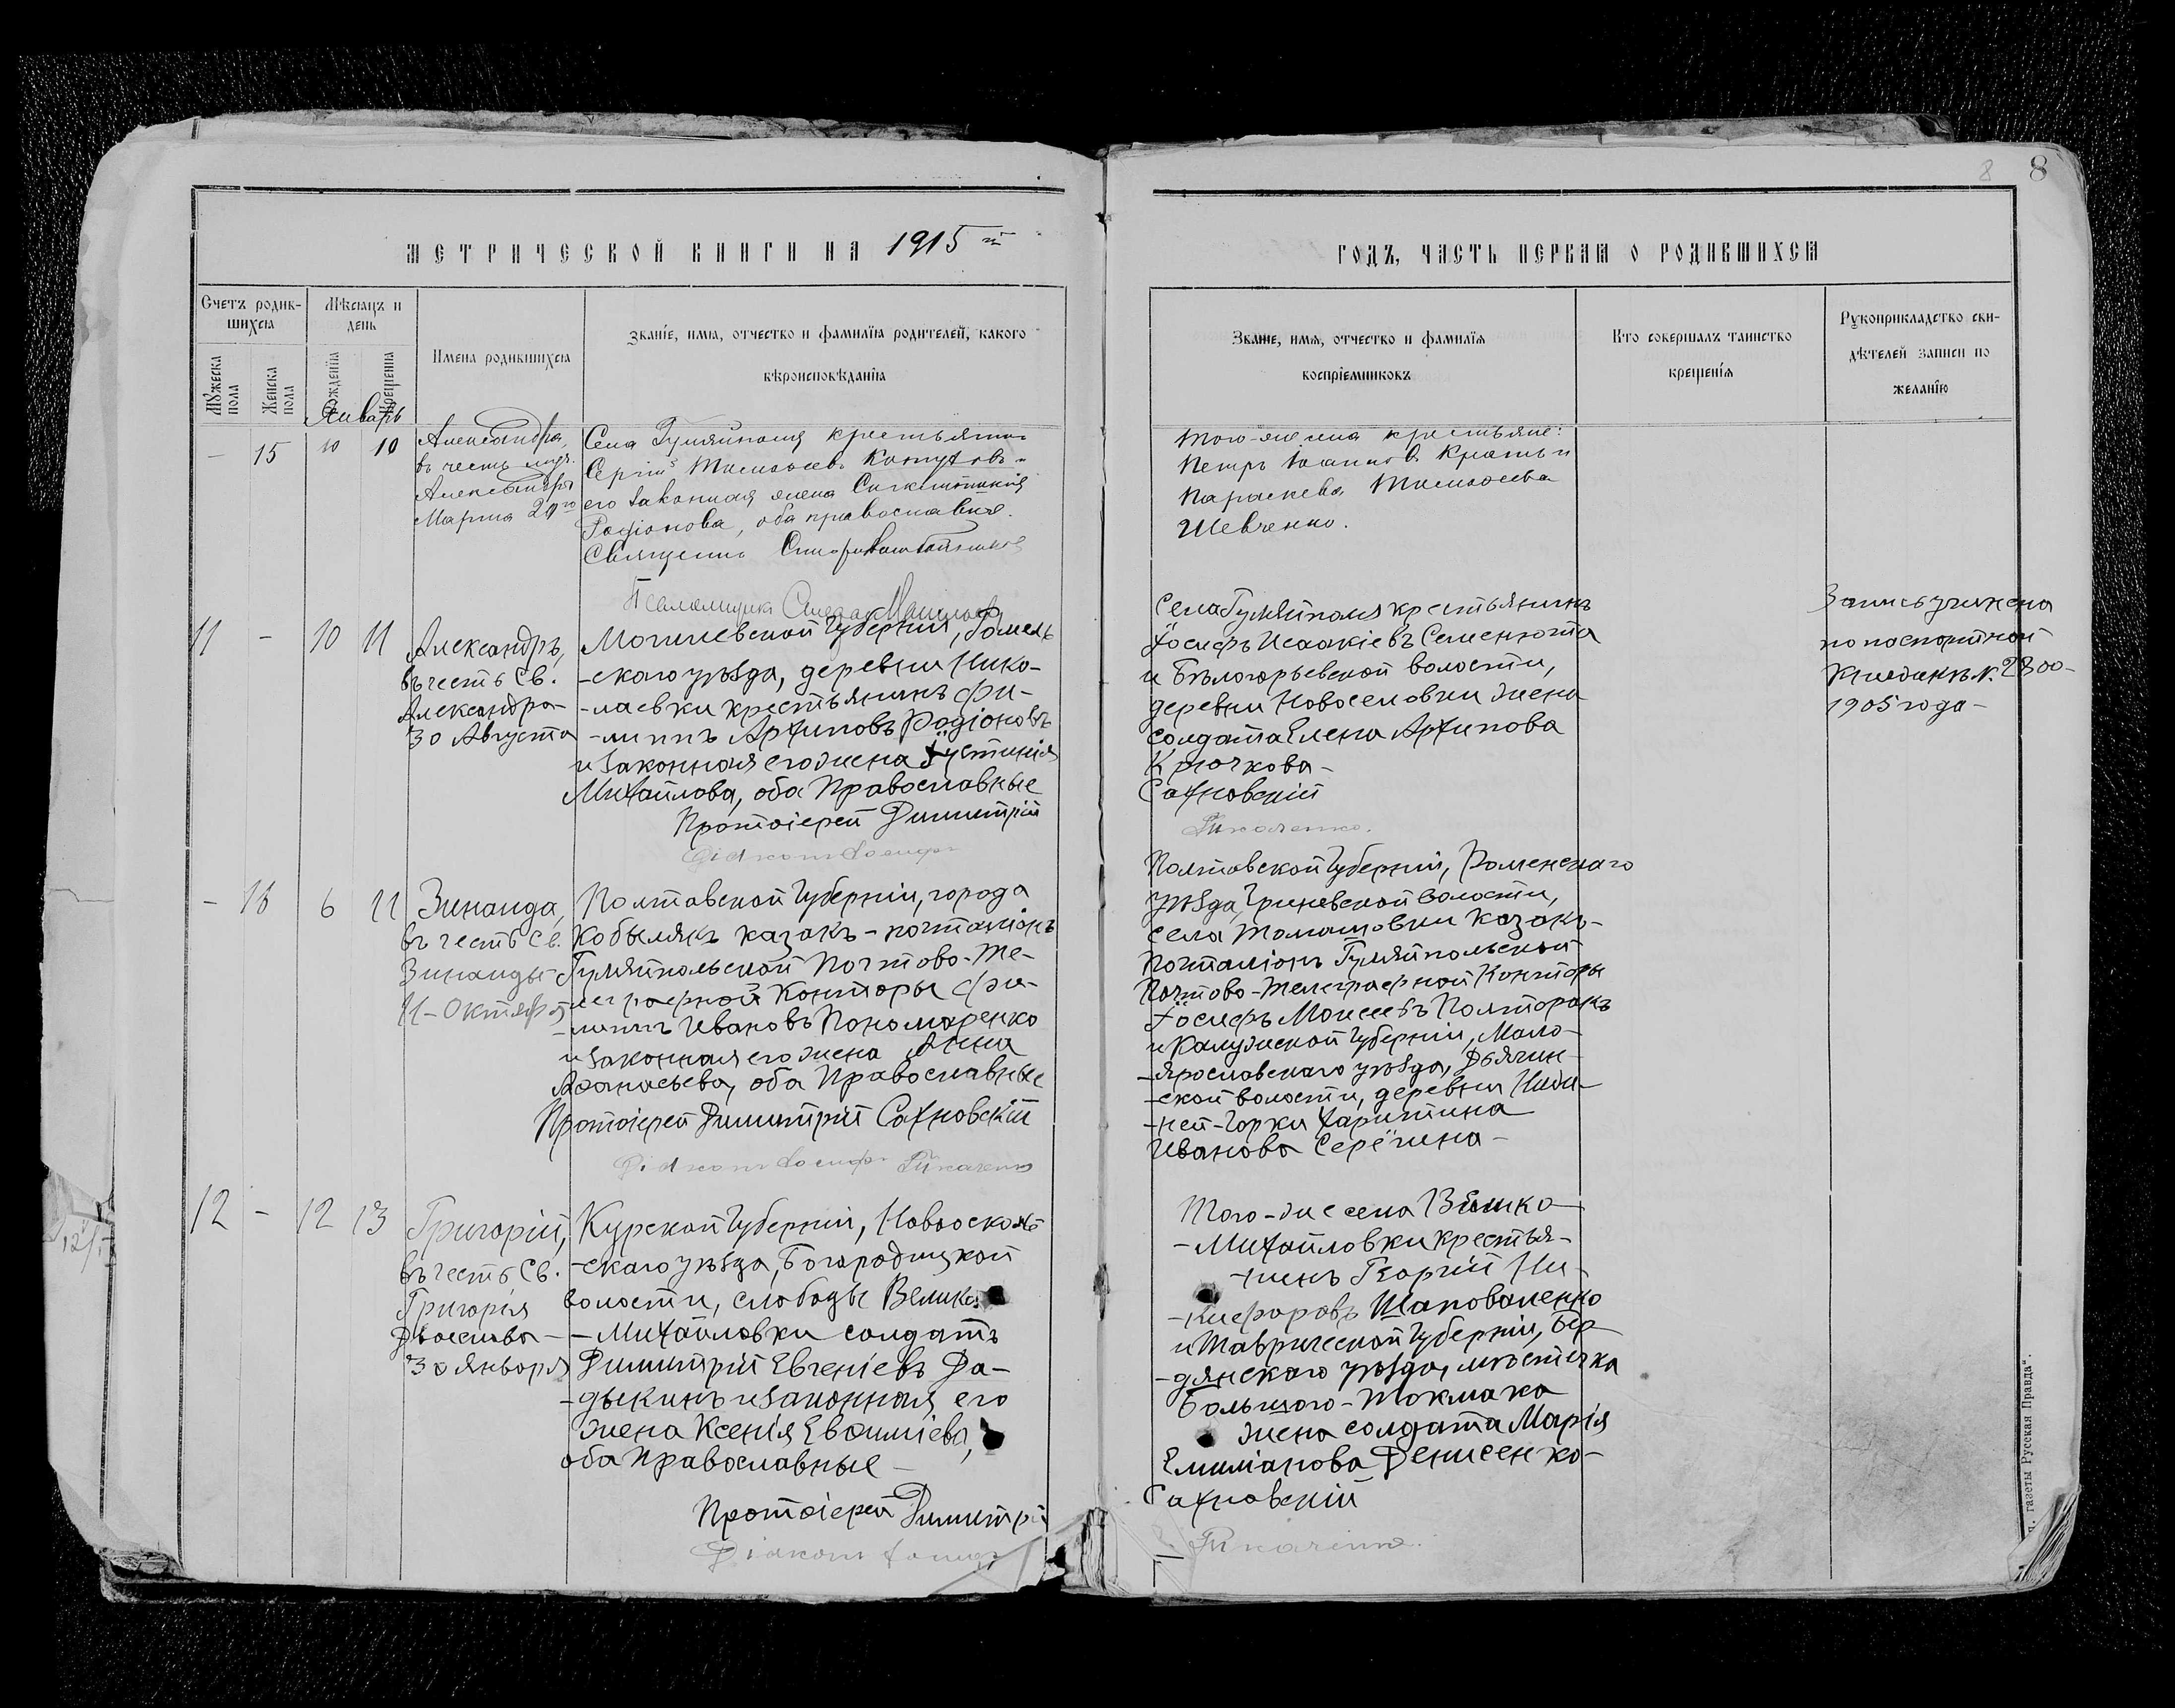 8 8
МЕТРИЧЕСКОЙ КНИГИ НА 1915 й
Счетъ родив-
шихся
Мѣсяцъ и
день
Имена родившихся
Званїе, имя, отчество и фамилїя родителей, какого
вѣроисповѣданїя
Мужеска
пола
Женска
пола
Рожденїя
Крещенїя
Январь
- 15 10 10
Александра,
въ честь муч.
Александры
Марта 20го
Села Гуляйполя крестьянинъ
Сергій Моисеевъ
его законная жена
Родіонова, оба православные.
Священникъ
Псаломщикъ
11 - 10 11
Александръ,
въ честь Св.
Александра
30 Августа
Могилевской Губерніи, Гомель
-скаго уѣзда, деревни Нико-
-лаевки крестьянинъ Фи-
-липпъ Архиповъ Родіоновъ
и законная его жена Іустинія
Михайлова, оба Православные
Протоіерей Димитрій
Діаконъ Іосифъ
- 16 6 11
Зинаида,
въ честь Св.
Зинаиды
11-Октября
Полтавской Губерніи, города
Кобылякъ казакъ-почталіонъ
Гуляйпольской Почтово-Те-
-леграфной Конторы Фи-
-липпъ Ивановъ Пономаренко
и законная его жена Анна
Аѳанасьева, оба Православные
Протоіерей Димитрій Сахновскій
Діаконъ Іосифъ Ткаченко
12 - 12 13
Григорій,
въ честь Св.
Григорія
Двоеслова-
30 Января
Курской Губерніи, Новоосколь
-скаго уѣзда, Богородицкой
волости, слободы Велико
-Михайловки солдатъ
Димитрій Евгеніевъ Да-
-дыкинъ и законная его
жена Ксенія Евѳиміева,
оба Православные-
Протоіерей Димитрій
Діаконъ Іосифъ
ГОДЪ, ЧАСТЬ ПЕРВАЯ О РОДИВШИХСЯ
Званїе, имя, отчество и фамилїя
воспрїемниковъ
Кто совершалъ таинство
крещенїя
Рукоприкладство сви-
дѣтелей записи по
желанїю
того-же села крестьяне:
Петръ Іоанновъ и
Параскева Моисеева
Шевченко.
Села Гуляйполя крестьянинъ
Іосифъ Исаакіевъ Семенюта
и Бѣлогорьевской волости,
деревни Новоселовки жена
солдата Елена Архипова
Крючкова-
Сахновскій
Ткаченко.
Запись учинена
по паспортной
Книжкѣ №. 2300-
1905 года-
Полтавской Губерніи, Роменскаго
уѣзда, Гриневской волости,
села Томашовки Казакъ-
Почталіонъ Гуляйпольской
Почтово-Телеграфной Конторы
Іосифъ Моисеевъ Полторакъ
и Калужской Губерніи, Мало-
-ярославскаго уѣзда,
-ской волости, деревни
-ней-Горки Харитина
Иванова Серёгина-
Того-же села Велико
-Михайловки крестья-
-нинъ Георгій Ни-
-кифоровъ Шаповаленко
и Таврической Губерніи, Бер
-дянскаго уѣзда, мѣстечка
Большого-Токмака
жена солдата Марія
Емиліанова Денисенко-
Сахновскій
Ткаченко.
п. газеты Русская Правда".